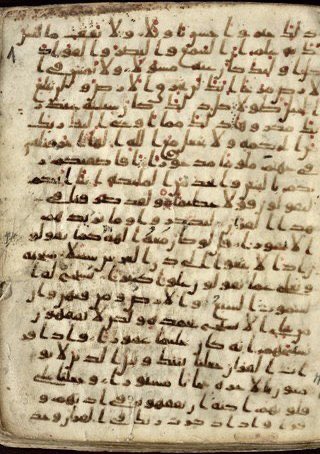 ذلك خير واحسن تاويلا ولا تقف ما ليس
لك به علم ان السمع والبصر والفواد
كل اولئك كان عنه مسولا ولا تمش في
الارض مرحا انك لن تخرق الارض ولن تبلغ
الجبال طولا كل ذلك كان سيئه عند
ربك مكروها ذلك مما اوحى اليك ربك
من الحكمه ولا تجعل مع الله الها اخر فتلقى
في جهنم ملوما مدحورا افاصفيكم
ربكم بالبنين واتخذ من الملئكه انثا انكم
لتقولون قولا عظيما ولقد صرفنا في
هذا القران ليذكروا وما يزيدهم
الا نفورا قل لو كان معه الهه كما يقولون
اذا لابتغوا الى ذي العرش سبيلا سبحنه
وتعلى عما يقولون علوا كبيرا تسبح له
السموت السبع والارض ومن فيهن وان
من شي الا يسبح بحمده ولكن لا تفقهون
تسبيحهم انه كان حليما غفورا واذا قر
ات القران جعلنا بينك وبين الذين لا يو
منون بالاخره حجابا مستورا وجعلنا على
قلوبهم اكنه ان يفقهوه وفي اذانهم و
قرا واذا ذكرت ربك في القران وحد